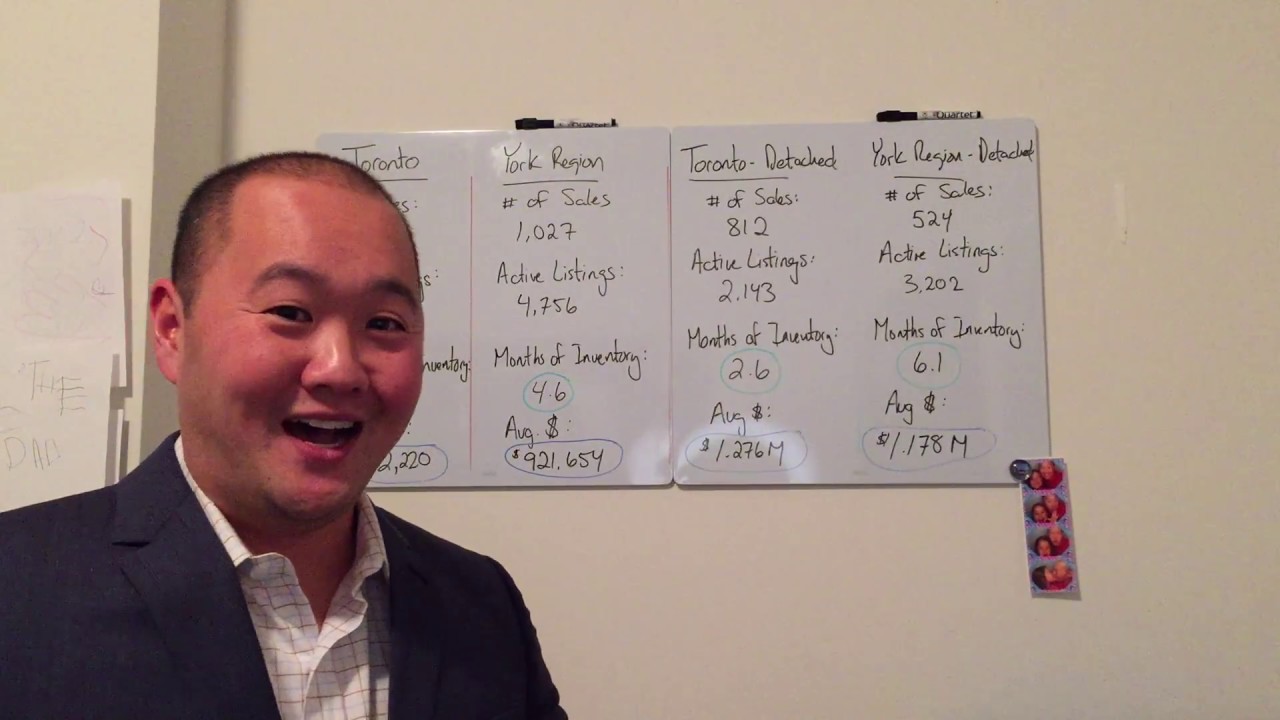 Toronto
2,220
York Region
# of Sales
1,027
Active Listings:
4,756
Months of Inventory:
4.6
Avg. $:
$921,654
Toronto - Detached
# of Sales:
812
Active Listings:
2,143
Months of Inventory:
2.6
Avg $:
$1.276M
York Region - Detached
# of Sales:
524
Active Listings:
3,202
Months of Inventory:
6.1
Avg $:
$1.178M
Quartet
Quartet
"THE
DAD